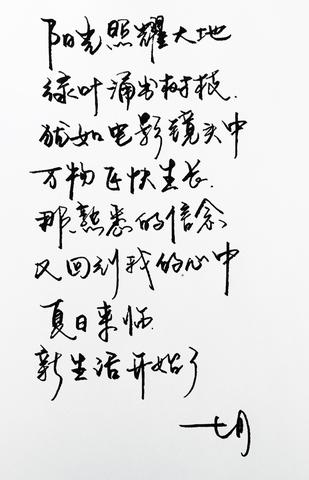 阳光照耀大地
绿叶涌出树枝.
犹如电影镜头中
万物飞快生长.
那熟悉的信念
又回到我的心中
夏日来临.
新生活开始了
七月